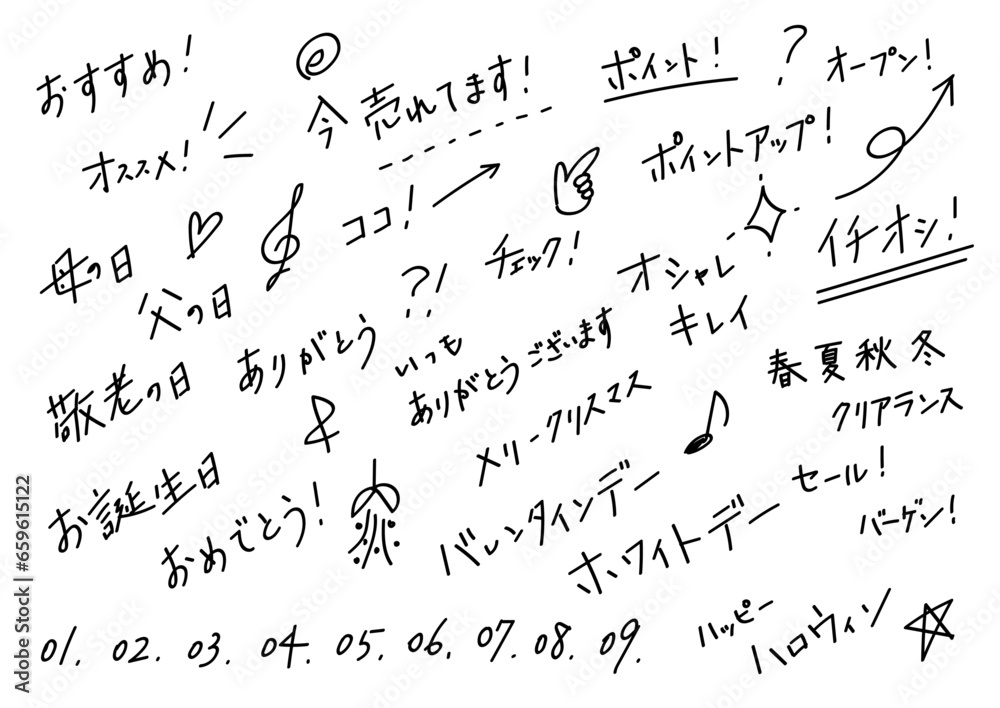 おすすめ!
今 売れてます!
ポイント!
?
オープン!
オススメ!
ポイントアップ!
ココ!
チェック!
イチオシ!
母の日
父の日
?!
オシャレ
キレイ
敬老の日
ありがとう
いつも
ありがとうございます
春 夏 秋 冬
クリアランス
メリークリスマス
お誕生日
おめでとう!
バレンタインデー
ホワイトデー
セール!
バーゲン!
01. 02. 03. 04. 05. 06. 07. 08. 09.
ハッピー
ハロウィン
Adobe Stock | #659615122
Adobe Stock